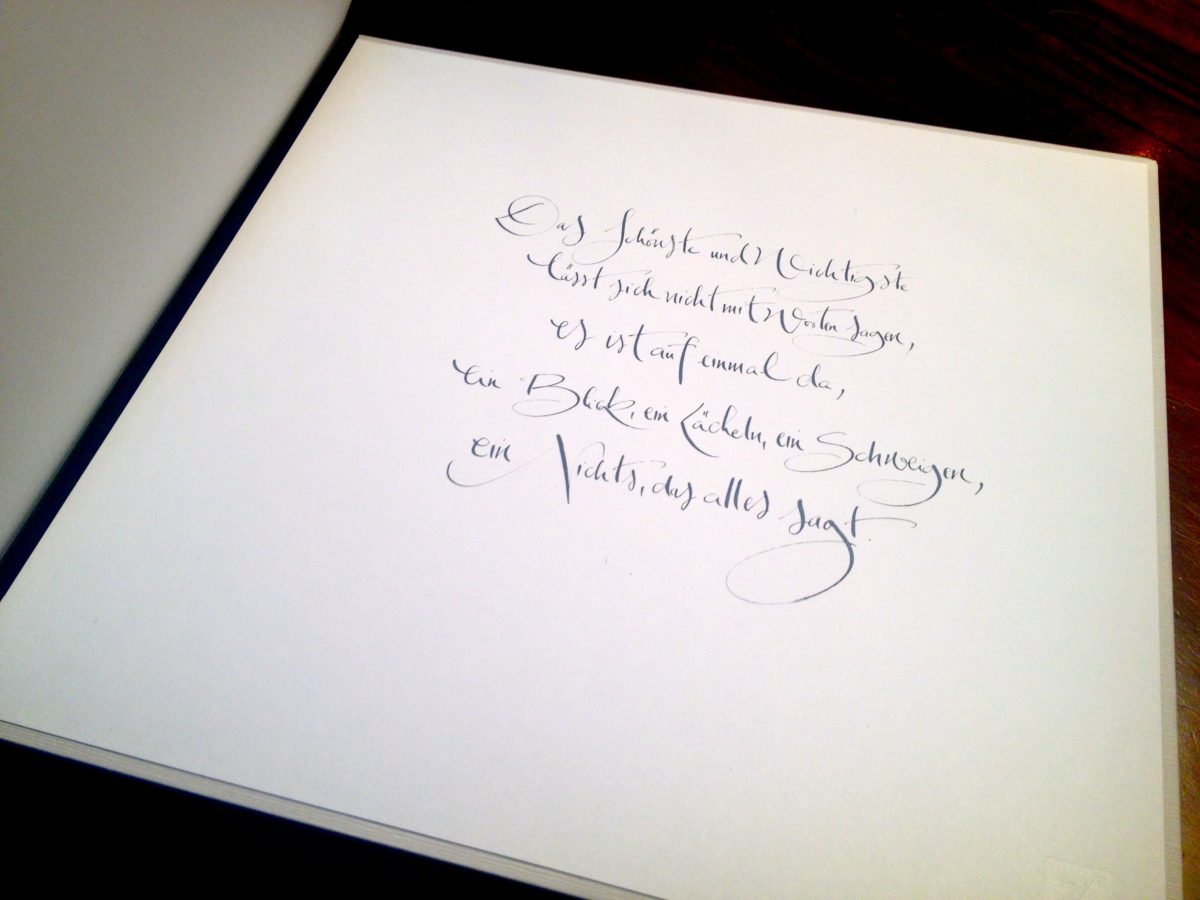 Das Schönste und Wichtigste
lässt sich nicht mit Worten sagen,
es ist auf einmal da,
ein Blick, ein Lächeln, ein Schweigen,
ein Nichts, das alles sagt.